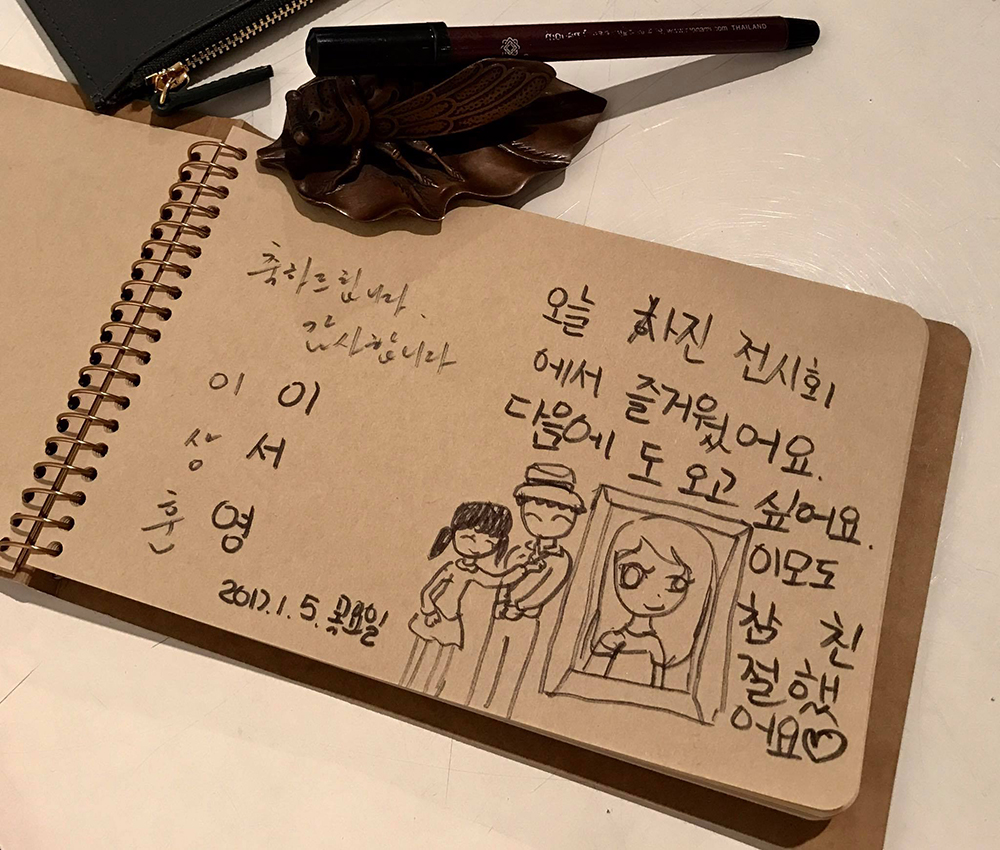 축하드립니다.
감사합니다
이 이
상 서
훈 영
2017.1.5.목요일
오늘 사진 전시회
에서 즐거웠어요.
다음에 도 오고 싶어요.
이모도
참 친
절했
어요♡
THAILAND